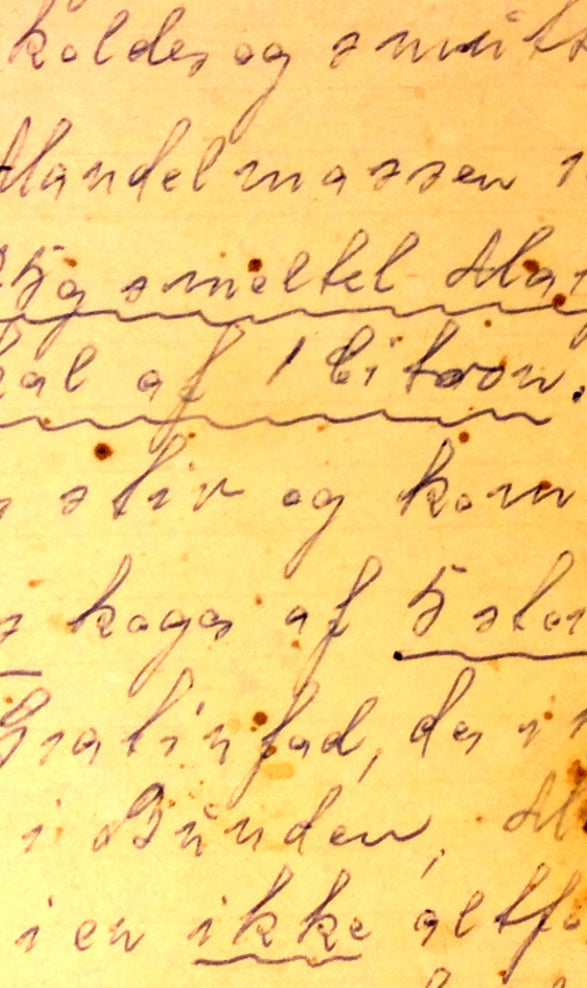 koldes og smutt
Mandelmassen
5g smeltet Mar
kal af 1 Citron.
stiv og kom
koges af 5 stor
Gratinfad, der
i Bunden, M
i en ikke altfo